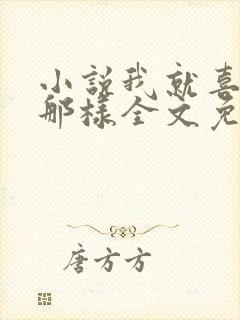 小說我就喜
那樣全文免
唐方方